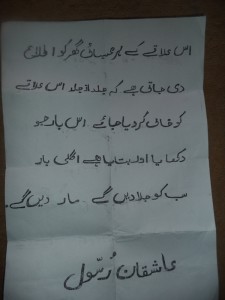 اس علاقے کے ہر عیسائی گھر کو اطلاع
دی جاتی ہے کہ جلد از جلد اس علاقے
کو خالی کر دیا جائے اس بار جو
سب کو جلا دیں گے مار دیں گے.
عاشقان رسول